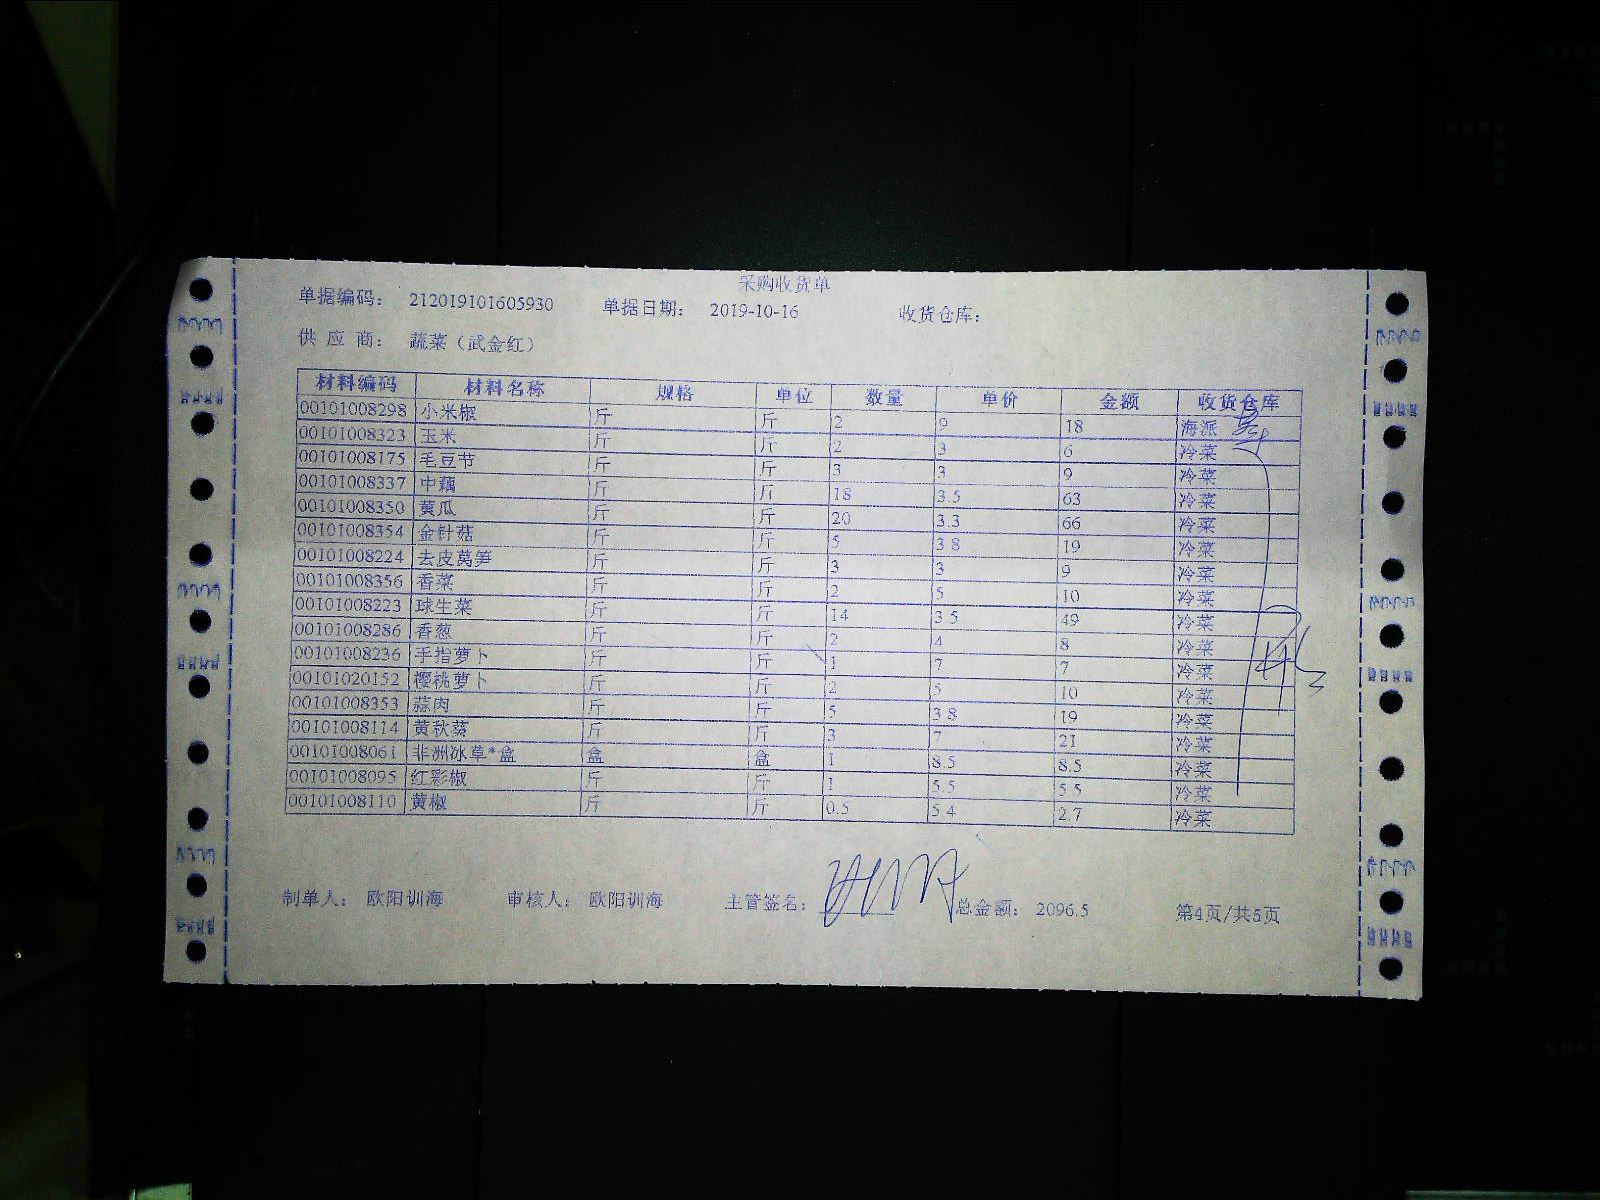 采购收货单
单据编码： 212019101605930 单据日期： 2019-10-16 收货仓库：
供 应 商： 蔬菜（武金红）
材料编码 材料名称 规格 单位 数量 单价 金额 收货仓库
00101008298 小米椒 斤 斤 2 9 18 海派
00101008323 玉米 斤 斤 2 3 6 冷菜
00101008175 毛豆节 斤 斤 3 3 9 冷菜
00101008337 中藕 斤 斤 18 3.5 63 冷菜
00101008350 黄瓜 斤 斤 20 3.3 66 冷菜
00101008354 金针菇 斤 斤 5 3.8 19 冷菜
00101008224 去皮莴笋 斤 斤 3 3 9 冷菜
00101008356 香菜 斤 斤 2 5 10 冷菜
00101008223 球生菜 斤 斤 14 3.5 49 冷菜
00101008286 香葱 斤 斤 2 4 8 冷菜
00101008236 手指萝卜 斤 斤 1 7 7 冷菜
00101020152 樱桃萝卜 斤 斤 2 5 10 冷菜
00101008353 蒜肉 斤 斤 5 3.8 19 冷菜
00101008114 黄秋葵 斤 斤 3 7 21 冷菜
00101008061 非洲冰草*盒 盒 盒 1 8.5 8.5 冷菜
00101008095 红彩椒 斤 斤 1 5.5 5.5 冷菜
00101008110 黄椒 斤 斤 0.5 5.4 2.7 冷菜
制单人： 欧阳训海 审核人： 欧阳训海 主管签名： 总金额： 2096.5 第4页/共5页